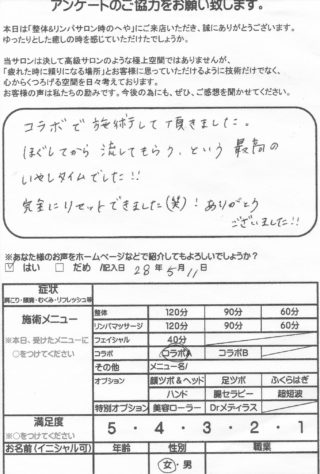 アンケートのご協力をお願い致します。
本日は「整体&リンパサロン時のへや」にご来店いただき、誠にありがとうございます。
ゆったりとした癒しの時を感じていただけたでしょうか。
当サロンは決して高級サロンのような極上の空間ではありませんが、
「疲れた時に頼りになる場所」とお客様に思っていただけるように技術だけでなく、
心からくつろげる空間を日々考えております。
お客様の声は私たちの励みです。今後の為にも、ぜひ、ご感想を聞かせてください。
コラボで施術して頂きました。
ほぐしてから流してもらう、という最高の
いやしタイムでした!!
完全にリセットできました(笑)!ありがとう
ございました!!
※あなた様のお声をホームページなどで紹介してもよろしいでしょうか?
はい だめ /記入日 28年5月11日
症状
肩こり・腰痛・むくみ・リフレッシュ等
施術メニュー
※本日、受けたメニューに
○をつけてください
整体 120分 90分 60分
リンパマッサージ 120分 90分 60分
フェイシャル 40分
コラボ コラボA コラボB
その他 メニュー名/
オプション 顔ツボ&ヘッド 足ツボ ふくらはぎ
ハンド 腸セラピー 超短波
特別オプション 美容ローラー Drメディラス
満足度
※○をつけてください
5・4・3・2・1
お名前(イニシャル可) 年齢 性別 職業
女・男